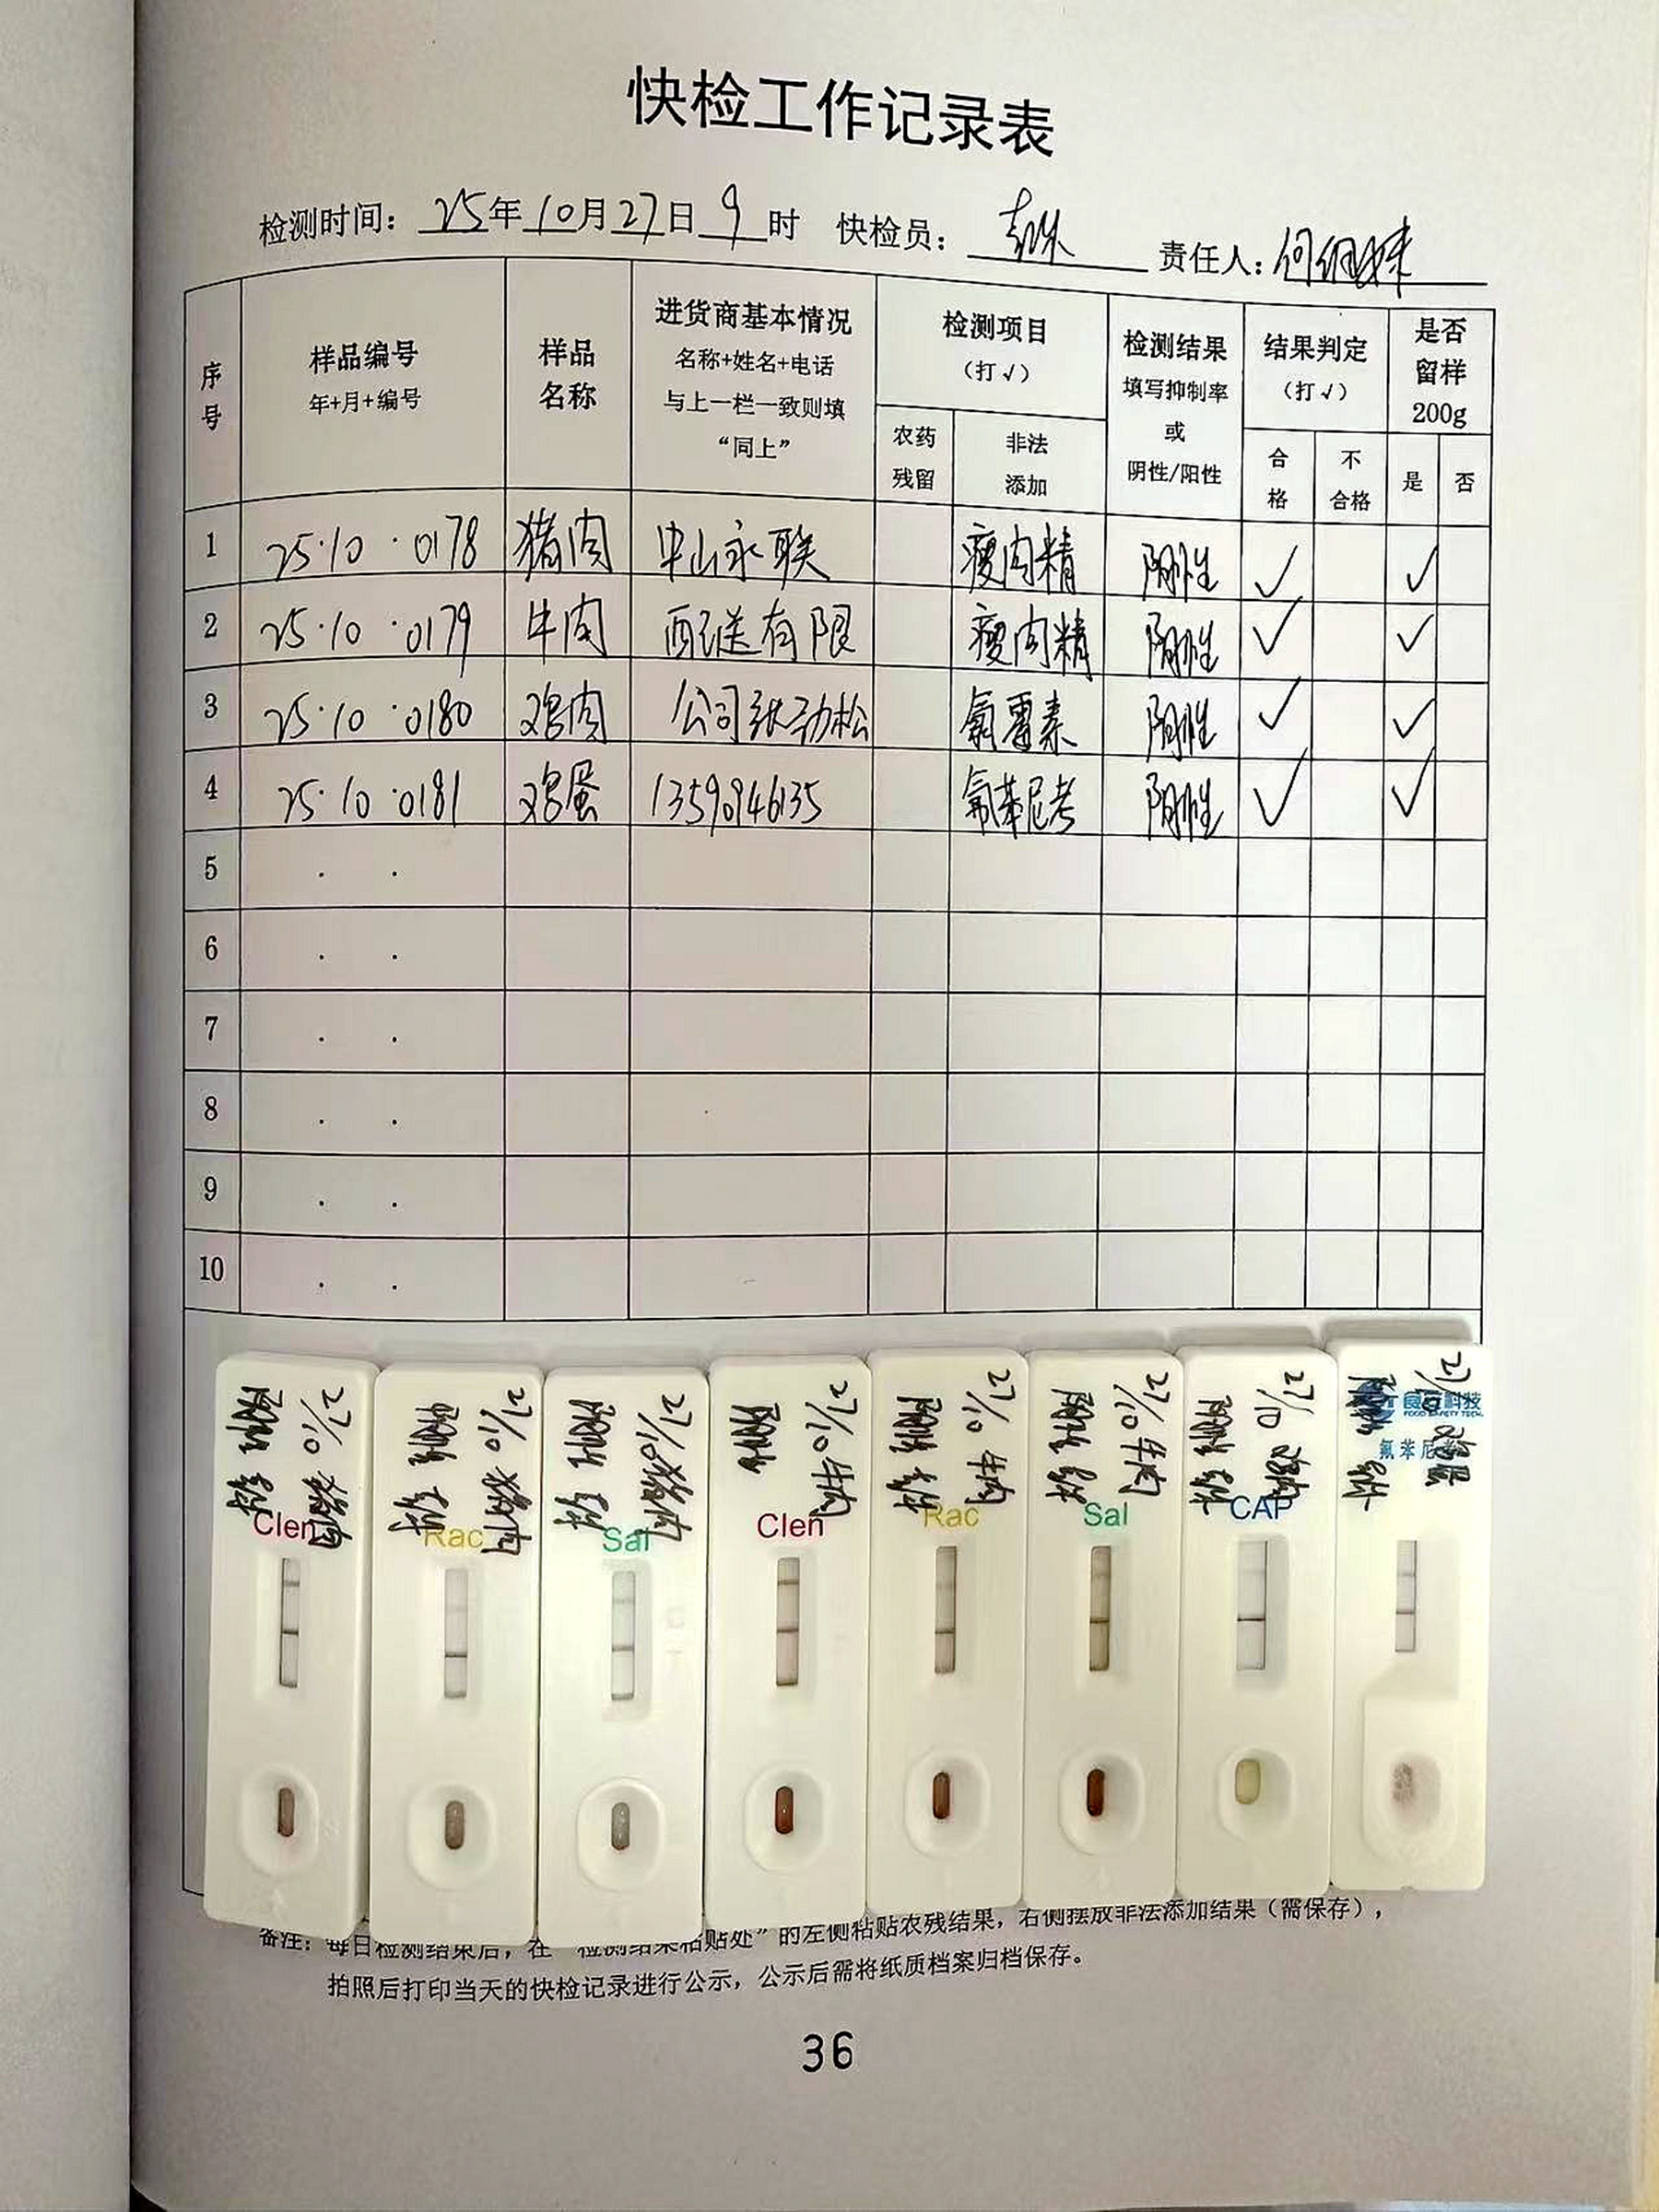 快检工作记录表
检测时间: 25年10月27日9时 快检员: 责任人:
序号 样品编号 年+月+编号 样品名称 进货商基本情况 名称+姓名+电话 与上一栏一致则填“同上” 检测项目 (打√) 农药残留 非法添加 检测结果 填写抑制率或阴性/阳性 结果判定 (打√) 合格 不合格 是否留样200g 是 否
1 25·10·0178 猪肉 中山永联 瘦肉精 阴性 ✓ ✓
2 25·10·0179 牛肉 配送有限 瘦肉精 阴性 ✓ ✓
3 25·10·0180 鸡肉 公司张劲松 氯霉素 阴性 ✓ ✓
4 25·10·0181 鸡蛋 13590946135 氟苯尼考 阴性 ✓ ✓
5 . .
6 . .
7 . .
8 . .
9 . .
10 . .
27/10 猪肉 阴性 Clen
27/10 猪肉 阴性 Rac
27/10 猪肉 阴性 Sal
27/10 牛肉 阴性 Clen
27/10 牛肉 阴性 Rac
27/10 牛肉 阴性 Sal
27/10 鸡肉 阴性 CAP
27/10 鸡蛋 食安科技 FOOD SAFETY TECH. 氟苯尼考
备注: 每日检测结束后, 在“检测结果粘贴处”的左侧粘贴农残结果, 右侧摆放非法添加结果(需保存),
拍照后打印当天的快检记录进行公示, 公示后需将纸质档案归档保存。
36